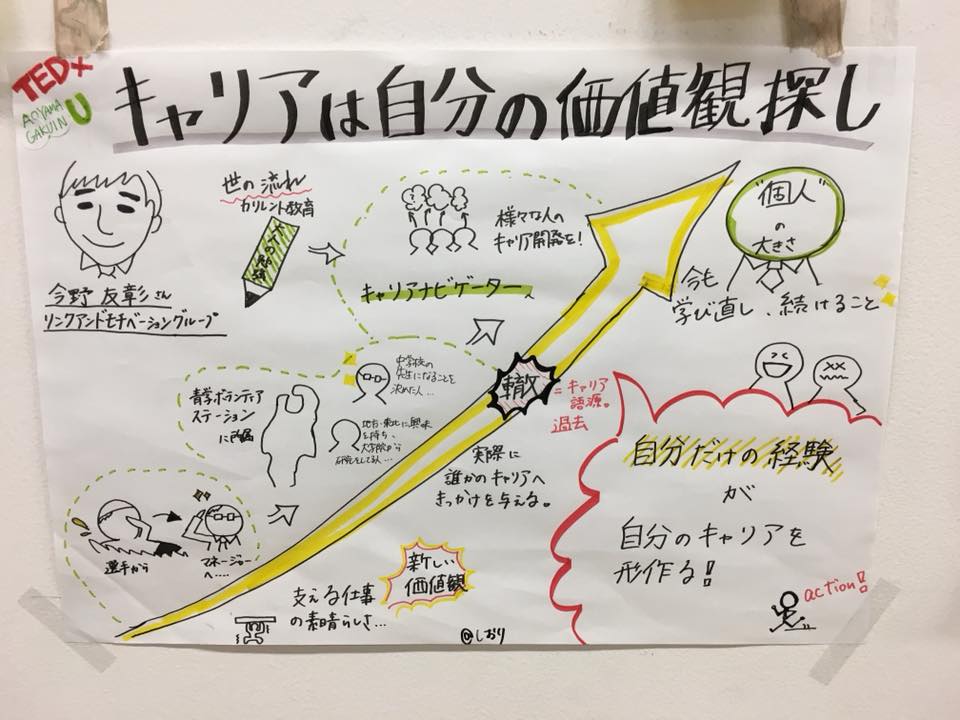 TEDx
AOYAMA
GAKUIN
U
キャリアは自分の価値観探し
今野 友彰さん
リンクアンドモチベーショングループ
世の流れ
カリレント教育
様々な人の
キャリア開発を!
キャリアナビゲーター
"個人"
の
大きさ
今も
学び直し、続けること
青学ボランティア
ステーション
に所属
中学校の
先生になることを
決めた人…
地方・東北に興味
を持ち、
大学院から
研究をしてる人…
轍
=キャリア
語源。
過去
実際に
誰かのキャリアへ
きっかけを与える。
選手から
マネージャー
へ....
新しい
価値観
支える仕事
の素晴らしさ...
@しおり
自分だけの経験
が
自分のキャリアを
形作る!
action!